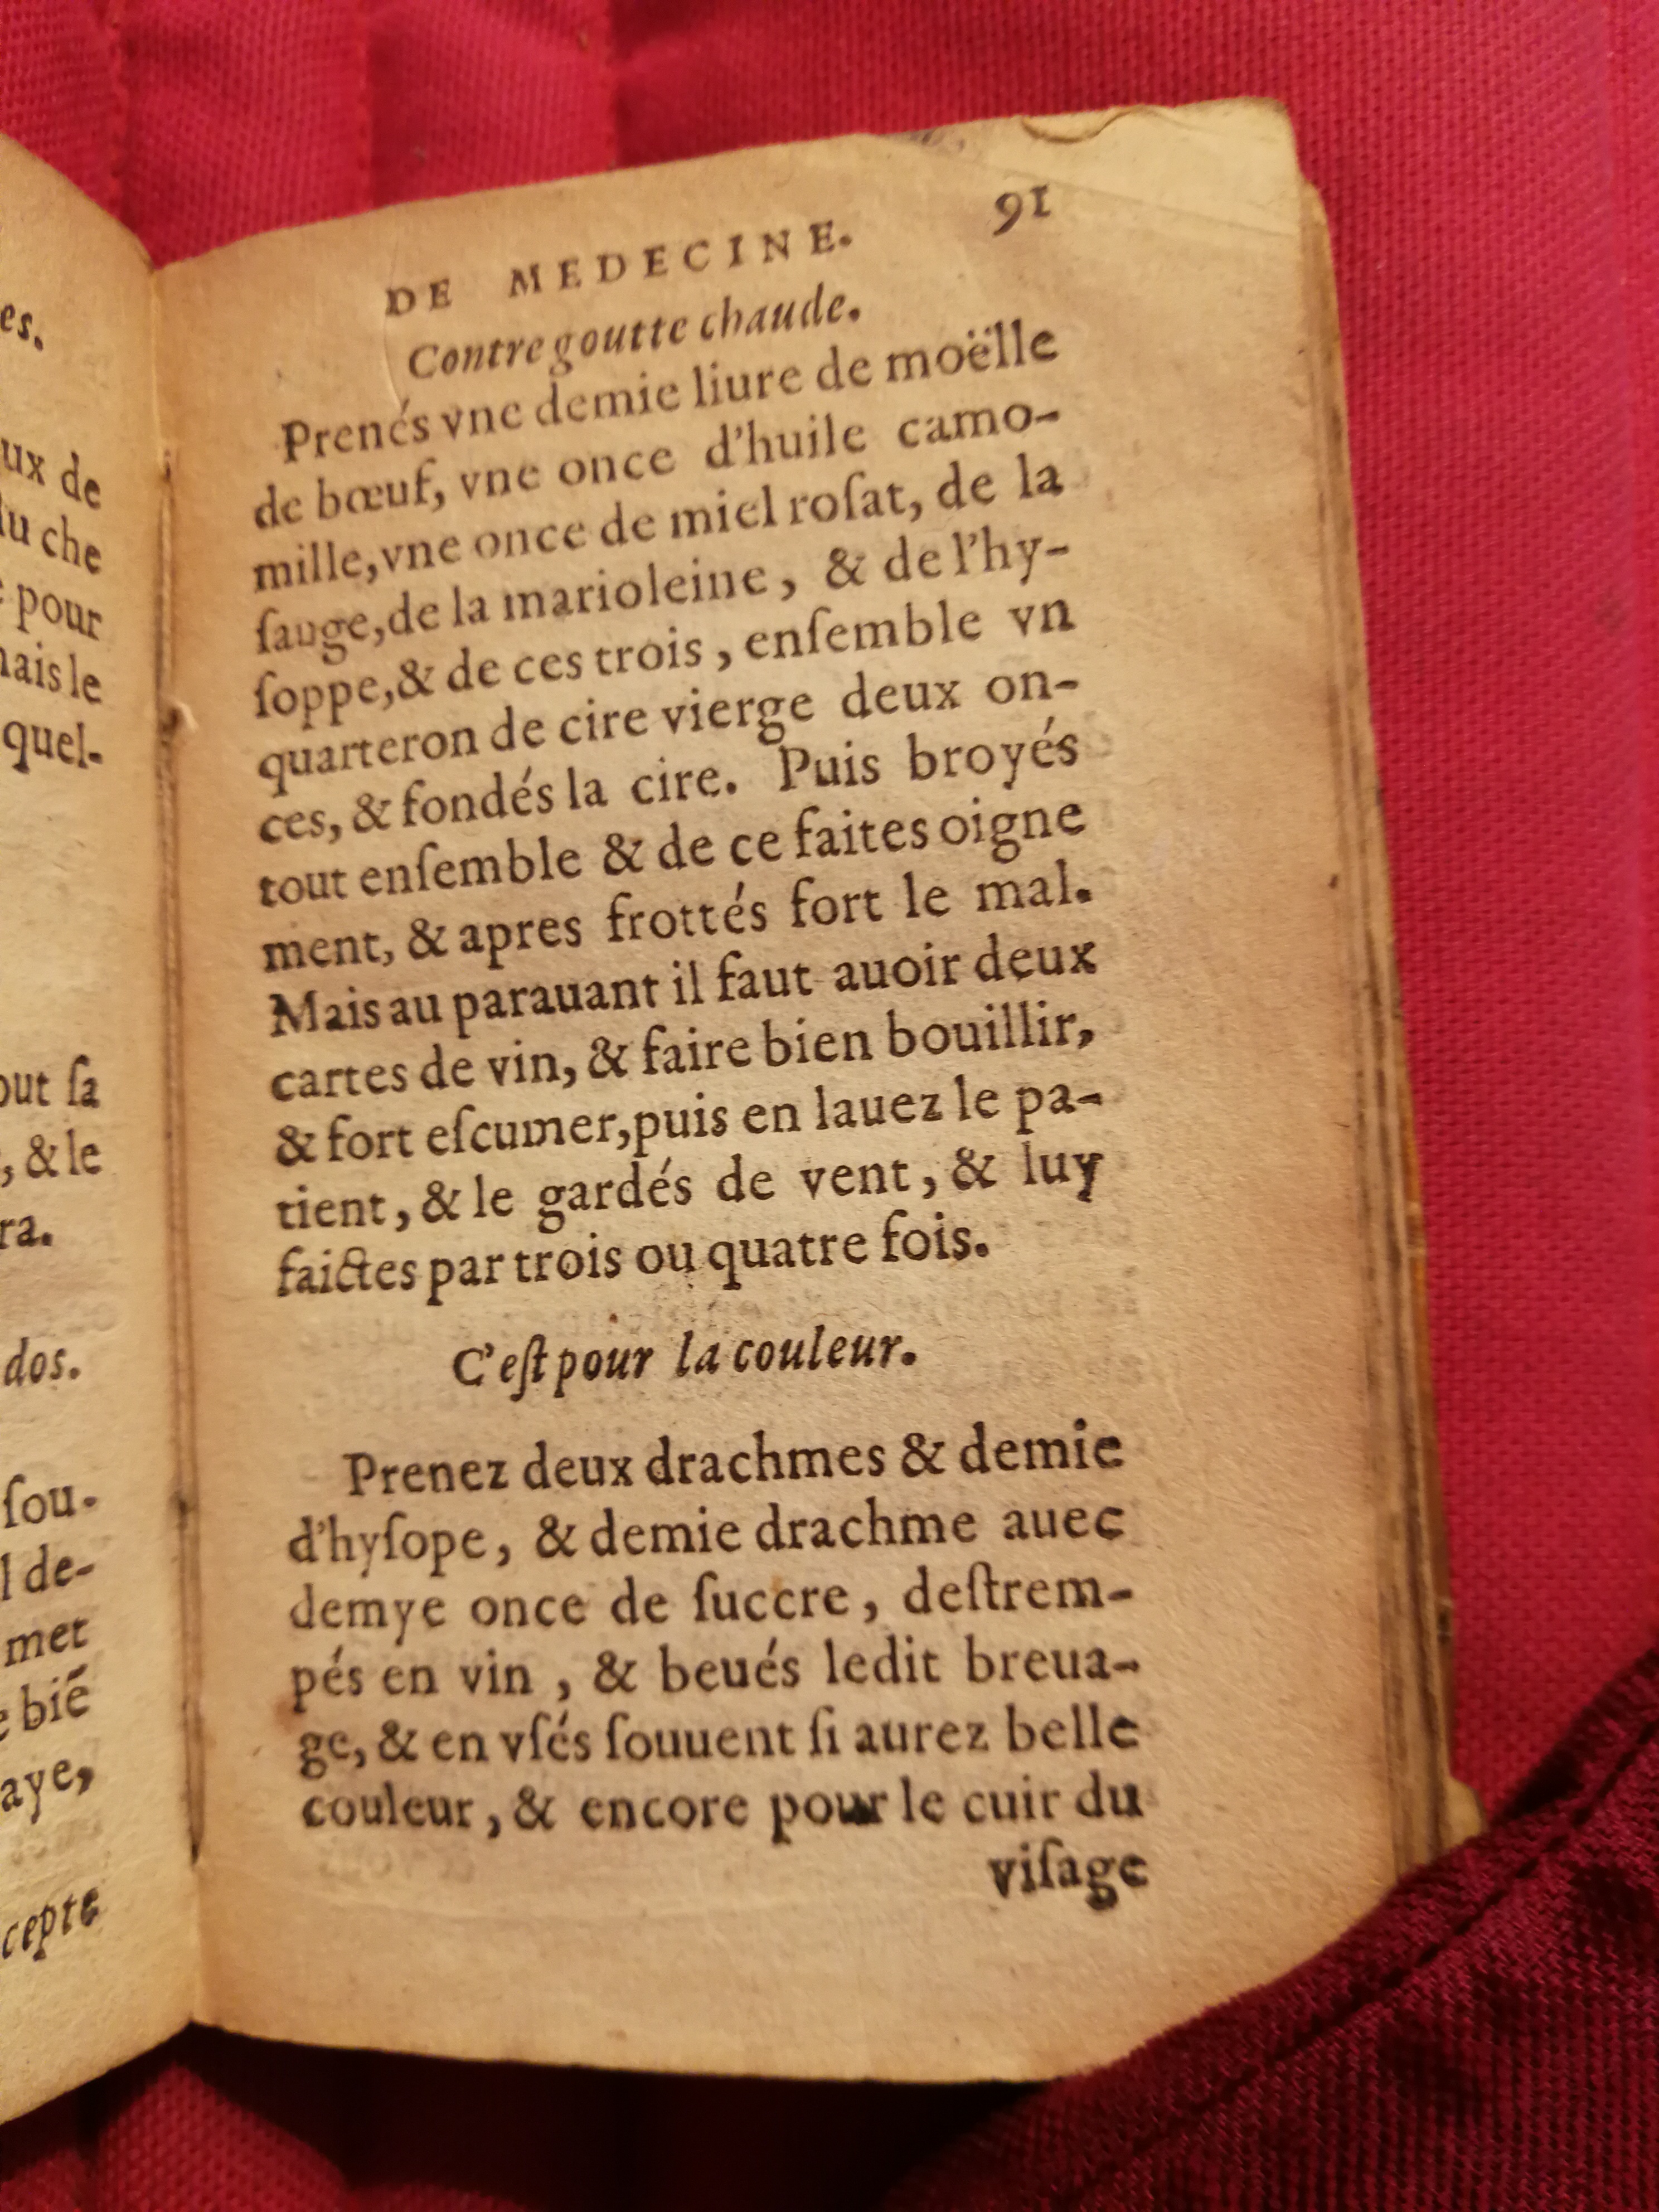 es.
ux de
lu che
pour
nais le
quel-
out ſa
, & le
ra.
dos.
ſou-
l de-
met
e bié
aye,
cepte
DE MEDECINE. 91
Contre goutte chaude.
Prenés vne demie liure de moëlle
de bœuf, vne once d'huile camo-
mille, vne once de miel roſat, de la
ſauge, de la marioleine, & de l'hy-
ſoppe, & de ces trois, enſemble vn
quarteron de cire vierge deux on-
ces, & fondés la cire. Puis broyés
tout enſemble & de ce faites oigne
ment, & apres frottés fort le mal.
Mais au parauant il faut auoir deux
cartes de vin, & faire bien bouillir,
& fort eſcumer, puis en lauez le pa-
tient, & le gardés de vent, & luy
faictes par trois ou quatre fois.
C'eſt pour la couleur.
Prenez deux drachmes & demie
d'hyſope, & demie drachme auec
demye once de ſuccre, deſtrem-
pés en vin, & beués ledit breua-
ge, & en vſés ſouuent ſi aurez belle
couleur, & encore pour le cuir du
viſage